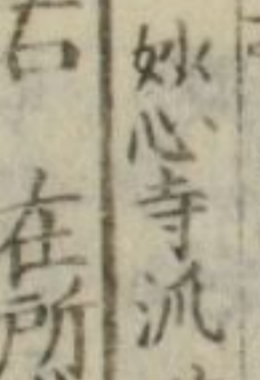 妙心寺派
右 在所